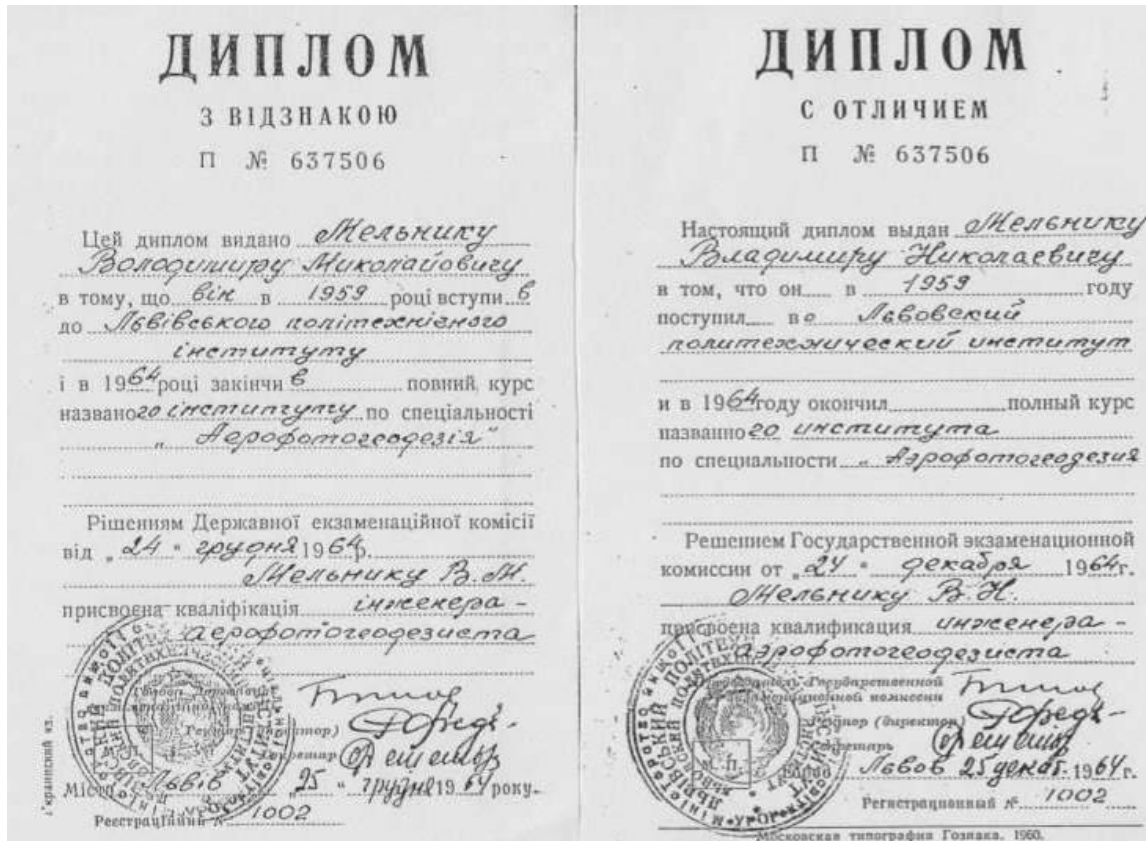 ДИПЛОМ
З ВІДЗНАКОЮ
П № 637506
Цей диплом видано Мельнику
Володимиру Миколайовичу
в тому, що він в 1959 році вступив
до Львівського політехнічного
інституту
і в 1964 році закінчив повний курс
названого інституту по спеціальності
„Аерофотогеодезія"
Рішенням Державної екзаменаційної комісії
від „24" грудня 1964 р.
Мельнику В. М.
присвоєна кваліфікація інженера-
аерофотогеодезиста
Місто Львів „25" грудня 1964 року.
Реєстраційний № 1002
ДИПЛОМ
С ОТЛИЧИЕМ
П № 637506
Настоящий диплом выдан Мельнику
Владимиру Николаевичу
в том, что он в 1959 году
поступил во Львовский
политехнический институт
и в 1964 году окончил полный курс
названного института
по специальности „Аэрофотогеодезия
Решением Государственной экзаменационной
комиссии от „24" декабря 1964 г.
Мельнику В. Н.
присвоена квалификация инженера-
аэрофотогеодезиста
Председатель Государственной
экзаменационной комиссии
Ректор (директор)
Секретарь
М. П. Город Львов 25 декаб. 1964 г.
Регистрационный № 1002
Московская типография Гознака. 1960.